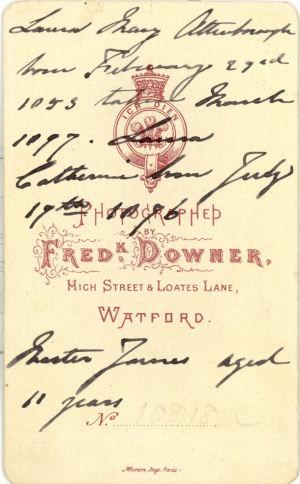 Laura Mary Attenborough
born February 22nd
1853 taken March
1897. Laura
ICH DIEN
Catherine born July
17th 1896
PHOTOGRAPHED
BY
FREDK. DOWNER,
HIGH STREET & LOATES LANE,
WATFORD.
James aged
11 years
No. 10818 C
Marion, Imp. Paris.